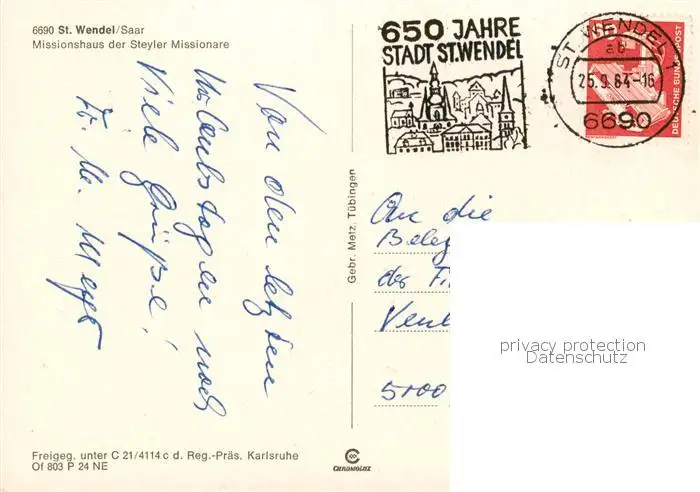 6690 St. Wendel/Saar
Missionshaus der Steyler Missionare
650 JAHRE
STADT ST. WENDEL
ST. WENDEL 1
ab
25.9.84-16
6690
DEUTSCHE BUNDESPOST
Von den letzten
Urlaubstagen noch
Viele Grüße!
Gebr. Metz, Tübingen
An die
Beleg
der Fi
5000
privacy protection
Datenschutz
Freigeg. unter C 21/4114 c d. Reg.-Präs. Karlsruhe
Of 803 P 24 NE
CHROMOLUX